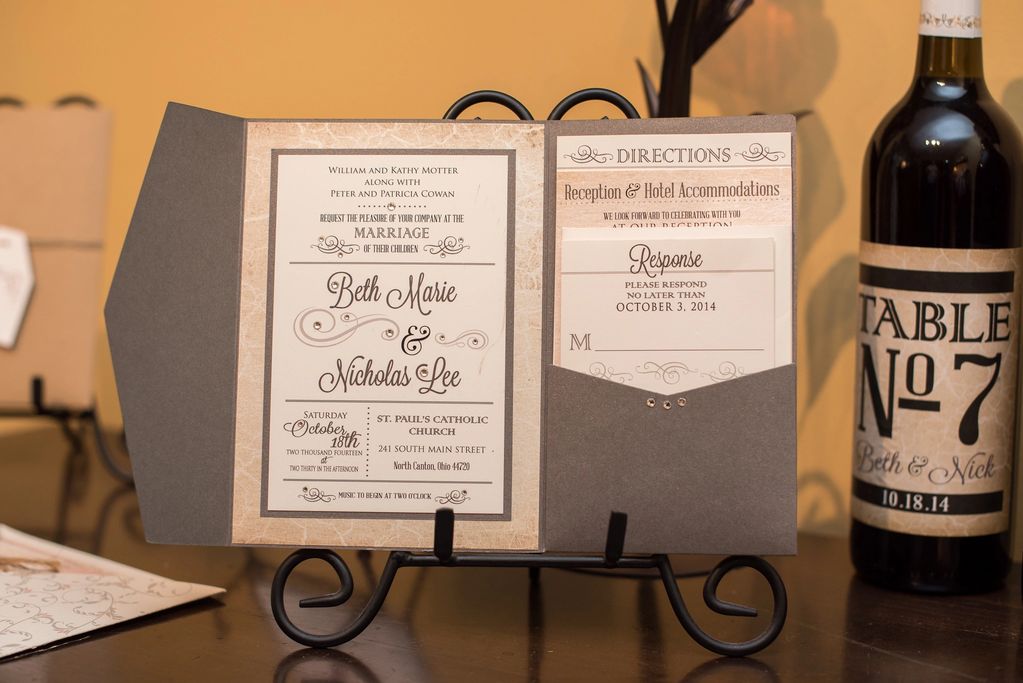 WILLIAM AND KATHY MOTTER
ALONG WITH
PETER AND PATRICIA COWAN
REQUEST THE PLEASURE OF YOUR COMPANY AT THE
MARRIAGE
OF THEIR CHILDREN
Beth Marie
&
Nicholas Lee
SATURDAY
October
18th
TWO THOUSAND FOURTEEN
at
TWO THIRTY IN THE AFTERNOON
ST. PAUL'S CATHOLIC
CHURCH
241 SOUTH MAIN STREET
North Canton, Ohio 44720
MUSIC TO BEGIN AT TWO O'CLOCK
DIRECTIONS
Reception & Hotel Accommodations
WE LOOK FORWARD TO CELEBRATING WITH YOU
AT OUR RECEPTION
Response
PLEASE RESPOND
NO LATER THAN
OCTOBER 3, 2014
M
TABLE
No 7
Beth & Nick
10.18.14